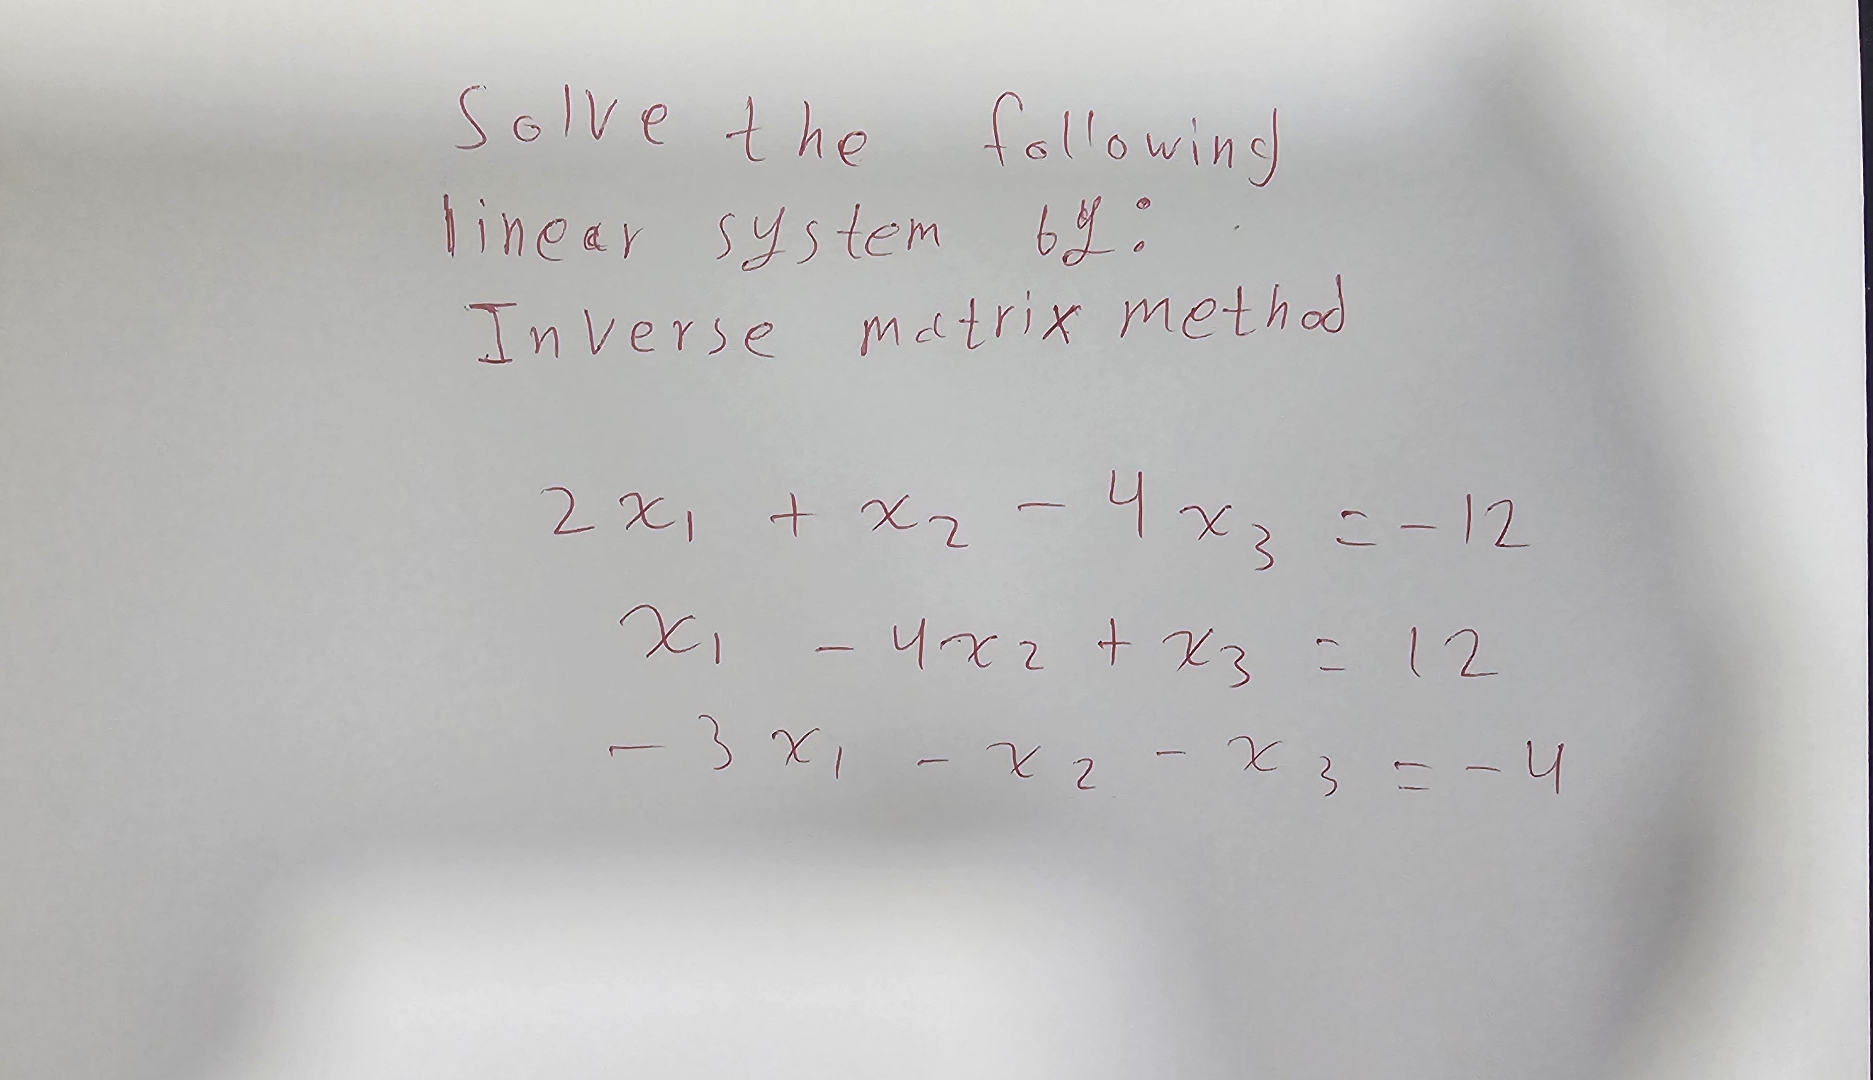 Solve the following
linear system by:
Inverse matrix method
2x₁ + x₂ - 4x₃ = -12
x₁ - 4x₂ + x₃ = 12
-3x₁ - x₂ - x₃ = -4